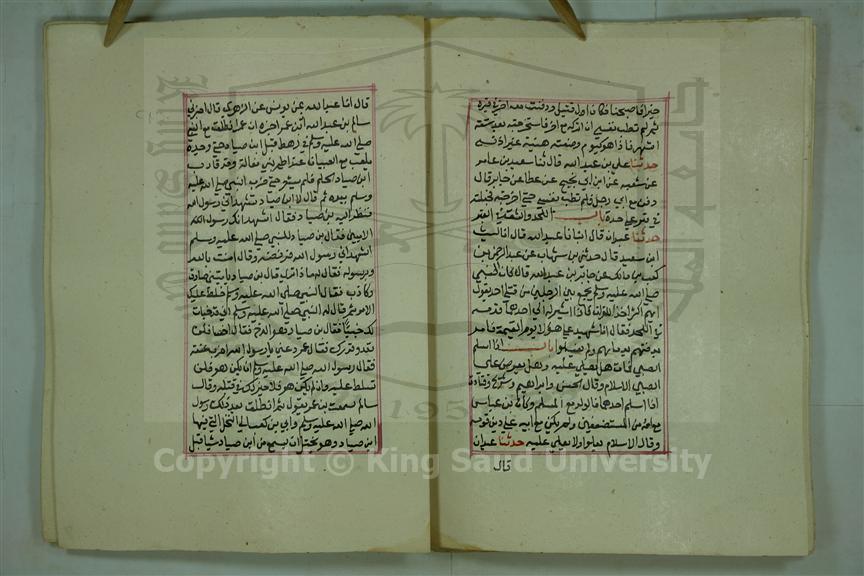 خيرا فاصبحنا فكان اول قتيل ودفنت معه اخر في قبره
ثم لم تطب نفسي ان اتركه مع اخر فاستخرجته بعد ستة
اشهر فاذا هو كيوم وضعته هنية غير اذنه
حدثنا علي بن عبد الله قال ثنا سعيد بن عامر
عن شعبه عن ابن ابي نجيح عن عطا عن جابر قال
دفن مع ابي رجل فلم تطب نفسي حتى اخرجته فجعلته
في قبر على حدة باب اللحد والشق في القبر
حدثنا عبدان قال انبانا عبد الله قال انا ليث
ابن سعيد قال حدثني بن شهاب عن عبد الرحمن بن
كعب بن مالك عن جابر بن عبد الله قال كان النبي
صلى الله عليه وسلم يجمع بين الرجلين من قتلى احد ثم يقول
ايهم اكثر اخذا للقران فاذا اشير له الى احدهما قدمه
في اللحد فقال انا شهيد على هؤلا يوم القيمة فامر
بدفنهم بدمائهم ولم يغسلوا باب اذا اسلم
الصبي فمات هل يصلى عليه وهل يعرض على
الصبي الاسلام وقال الحسن وابراهيم وشريح وقتادة
اذا اسلم احدهما فالولد مع المسلم وكان بن عباس
مع امه من المستضعفين ولم يكن مع ابيه على دين قومه
وقال الاسلام يعلو ولا يعلى عليه حدثنا عبدان
قال
قال انا عبد الله عن يونس عن الزهري قال اخبرني
سالم بن عبد الله ان بن عمر اخبره ان عمر انطلق مع النبي
صلى الله عليه وسلم في رهط قبل ابن صياد حتى وجده
يلعب مع الصبيان عند اطم بني مغالة وقد قارب
ابن صياد الحلم فلم يشعر حتى ضرب النبي صلى الله عليه
وسلم بيده ثم قال لابن صياد تشهد اني رسول الله
فنظر اليه بن صياد فقال اشهد انك رسول الله
الاميين فقال بن صياد للنبي صلى الله عليه وسلم
اتشهد اني رسول الله فرفضه وقال امنت بالله
ورسوله فقال له ما ذا ترى قال بن صياد يأتيني صادق
وكاذب فقال النبي صلى الله عليه وسلم خلط عليك
الامر ثم قال له النبي صلى الله عليه وسلم اني قد خبات
لك خبيئا فقال بن صياد هو الدخ فقال اخسا فلن
تعدو قدرك فقال عمر دعني يا رسول الله اضرب عنقه
فقال رسول الله صلى الله عليه وسلم ان يكن هو فلن
تسلط عليه وان لم يكن هو فلا خير لك في قتله وقال
سالم سمعت بن عمر يقول ثم انطلق بعد ذلك رسول
الله صلى الله عليه وسلم وابي بن كعب الى النخل التي فيها
ابن صياد وهو يختل ان يسمع من ابن صياد شيا قبل
Copyright © King Saud University
1957